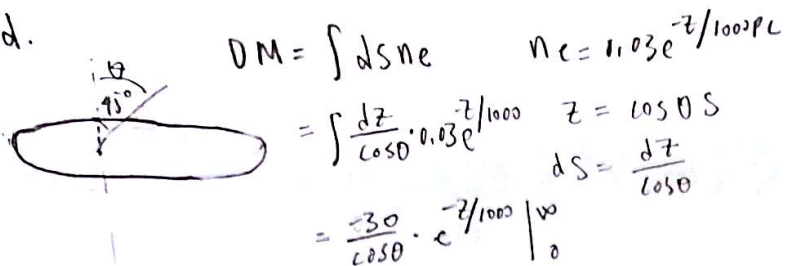 d.
θ
45°
DM = ∫ ds ne    ne = 0.03e^-z/1000pc
= ∫ dz/cosθ · 0.03e^-z/1000    z = cosθ s
ds = dz/cosθ
= -30/cosθ · e^-z/1000 |∞ 0